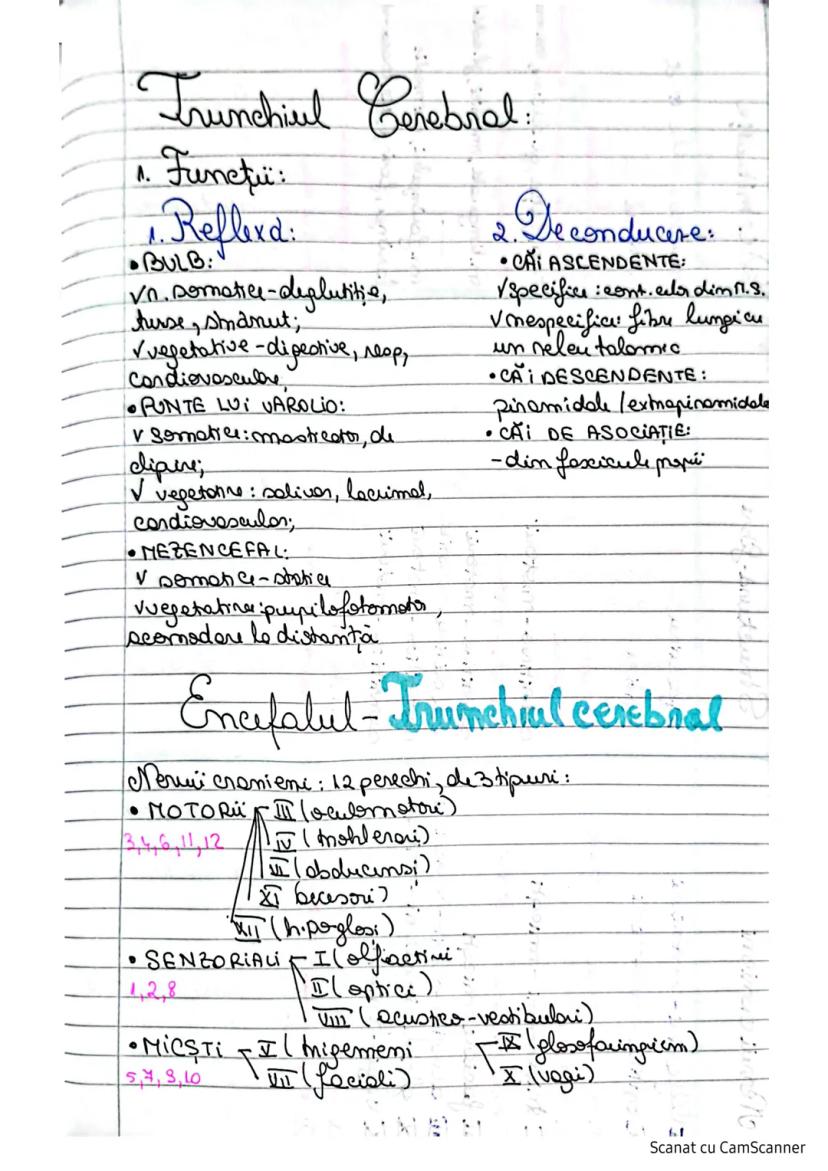 Trunchiul Cerebral:
1. Funcții:
1. Reflexă:
• BULB:
√n. somatici-deglutiție,
tuse, strănut;
√vegetative-digestive, resp,
cardiovasculare,
• PUNTE LUI VAROLIO:
√ somatice: masticator, de
clipire;
√ vegetative: salivar, lacrimal,
cardiovascular;
• MEZENCEFAL:
√ somatice-statice
√vegetative: pupilofotomotor,
acomodare la distanță
2. De conducere:
• CĂI ASCENDENTE:
√specifice: cont. celor dim M.S.
√nespecifice: fibre lungi cu
un releu talamic
• CĂI DESCENDENTE:
piramidale/extrapiramidale
• CĂI DE ASOCIAȚIE:
-din fascicule proprii
Encefalul-Trunchiul cerebral
Nervii cranieni: 12 perechi, de 3 tipuri:
• MOTORII III (oculomotori)
3,4,6,11,12 IV (trohleari)
VI (abducensi)
XI accesori)
XII (hipoglosi)
• SENZORIALI I (olfactivi
1,2,8 II (optici)
VIII (acustico-vestibulari)
• MICȘTI V ( trigemeni IX (glosofaringieni)
5,7,9,10 VII (faciali) X (vagi)
Scanat cu CamScanner